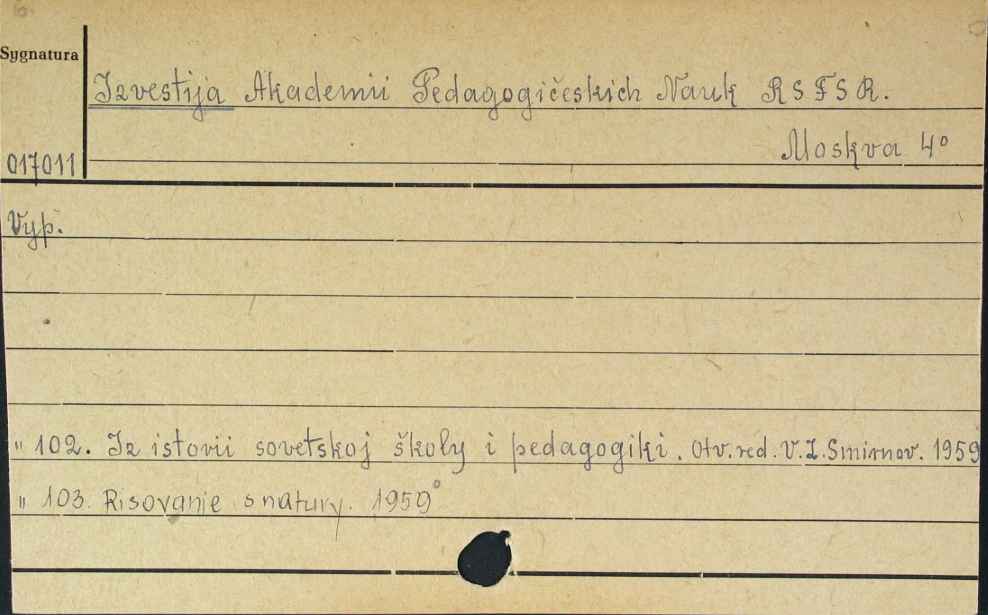 Sygnatura
Izvestija Akademii Pedagogičeskich Nauk RSFSR.
Moskva 4°
017011
Vyp.
" 102. Iz istorii sovetskoj školy i pedagogiki. Otv. red. V.Z. Smirnov. 1959
" 103. Risovanie s natury. 1959°